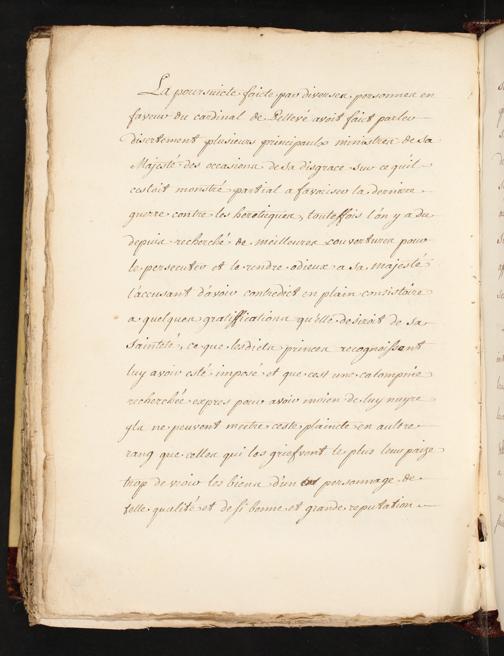 La poursuicte faicte par diverses personnes en
faveur du cardinal de Pellevé avoit faict parler
disertement plusieurs principaulx ministres de sa
Majesté des occasions de sa disgrace sur ce qu'il
s'estoit monstré partial a favoriser la derniere
guerre contre les heretiques, touteffois l'on y a du
depuis recherché de meilleures couvertures pour
le persecuter et le rendre odieux a sa majesté
l'accusant d'avoir contredict en plain consistoire
a quelques gratiffications qu'elle desiroit de sa
sainteté, ce que lesdicts princes recognoissent
luy avoir esté imposé et que c'est une calompnie
recherchée expres pour avoir moien de luy nuyre
yls ne peuvent mettre ceste plaincte en aultre
rang que celles qui les griefvent le plus leur
trop de veoir les biens d'un tel personnage de
telle qualité et de si bonne et grande reputation